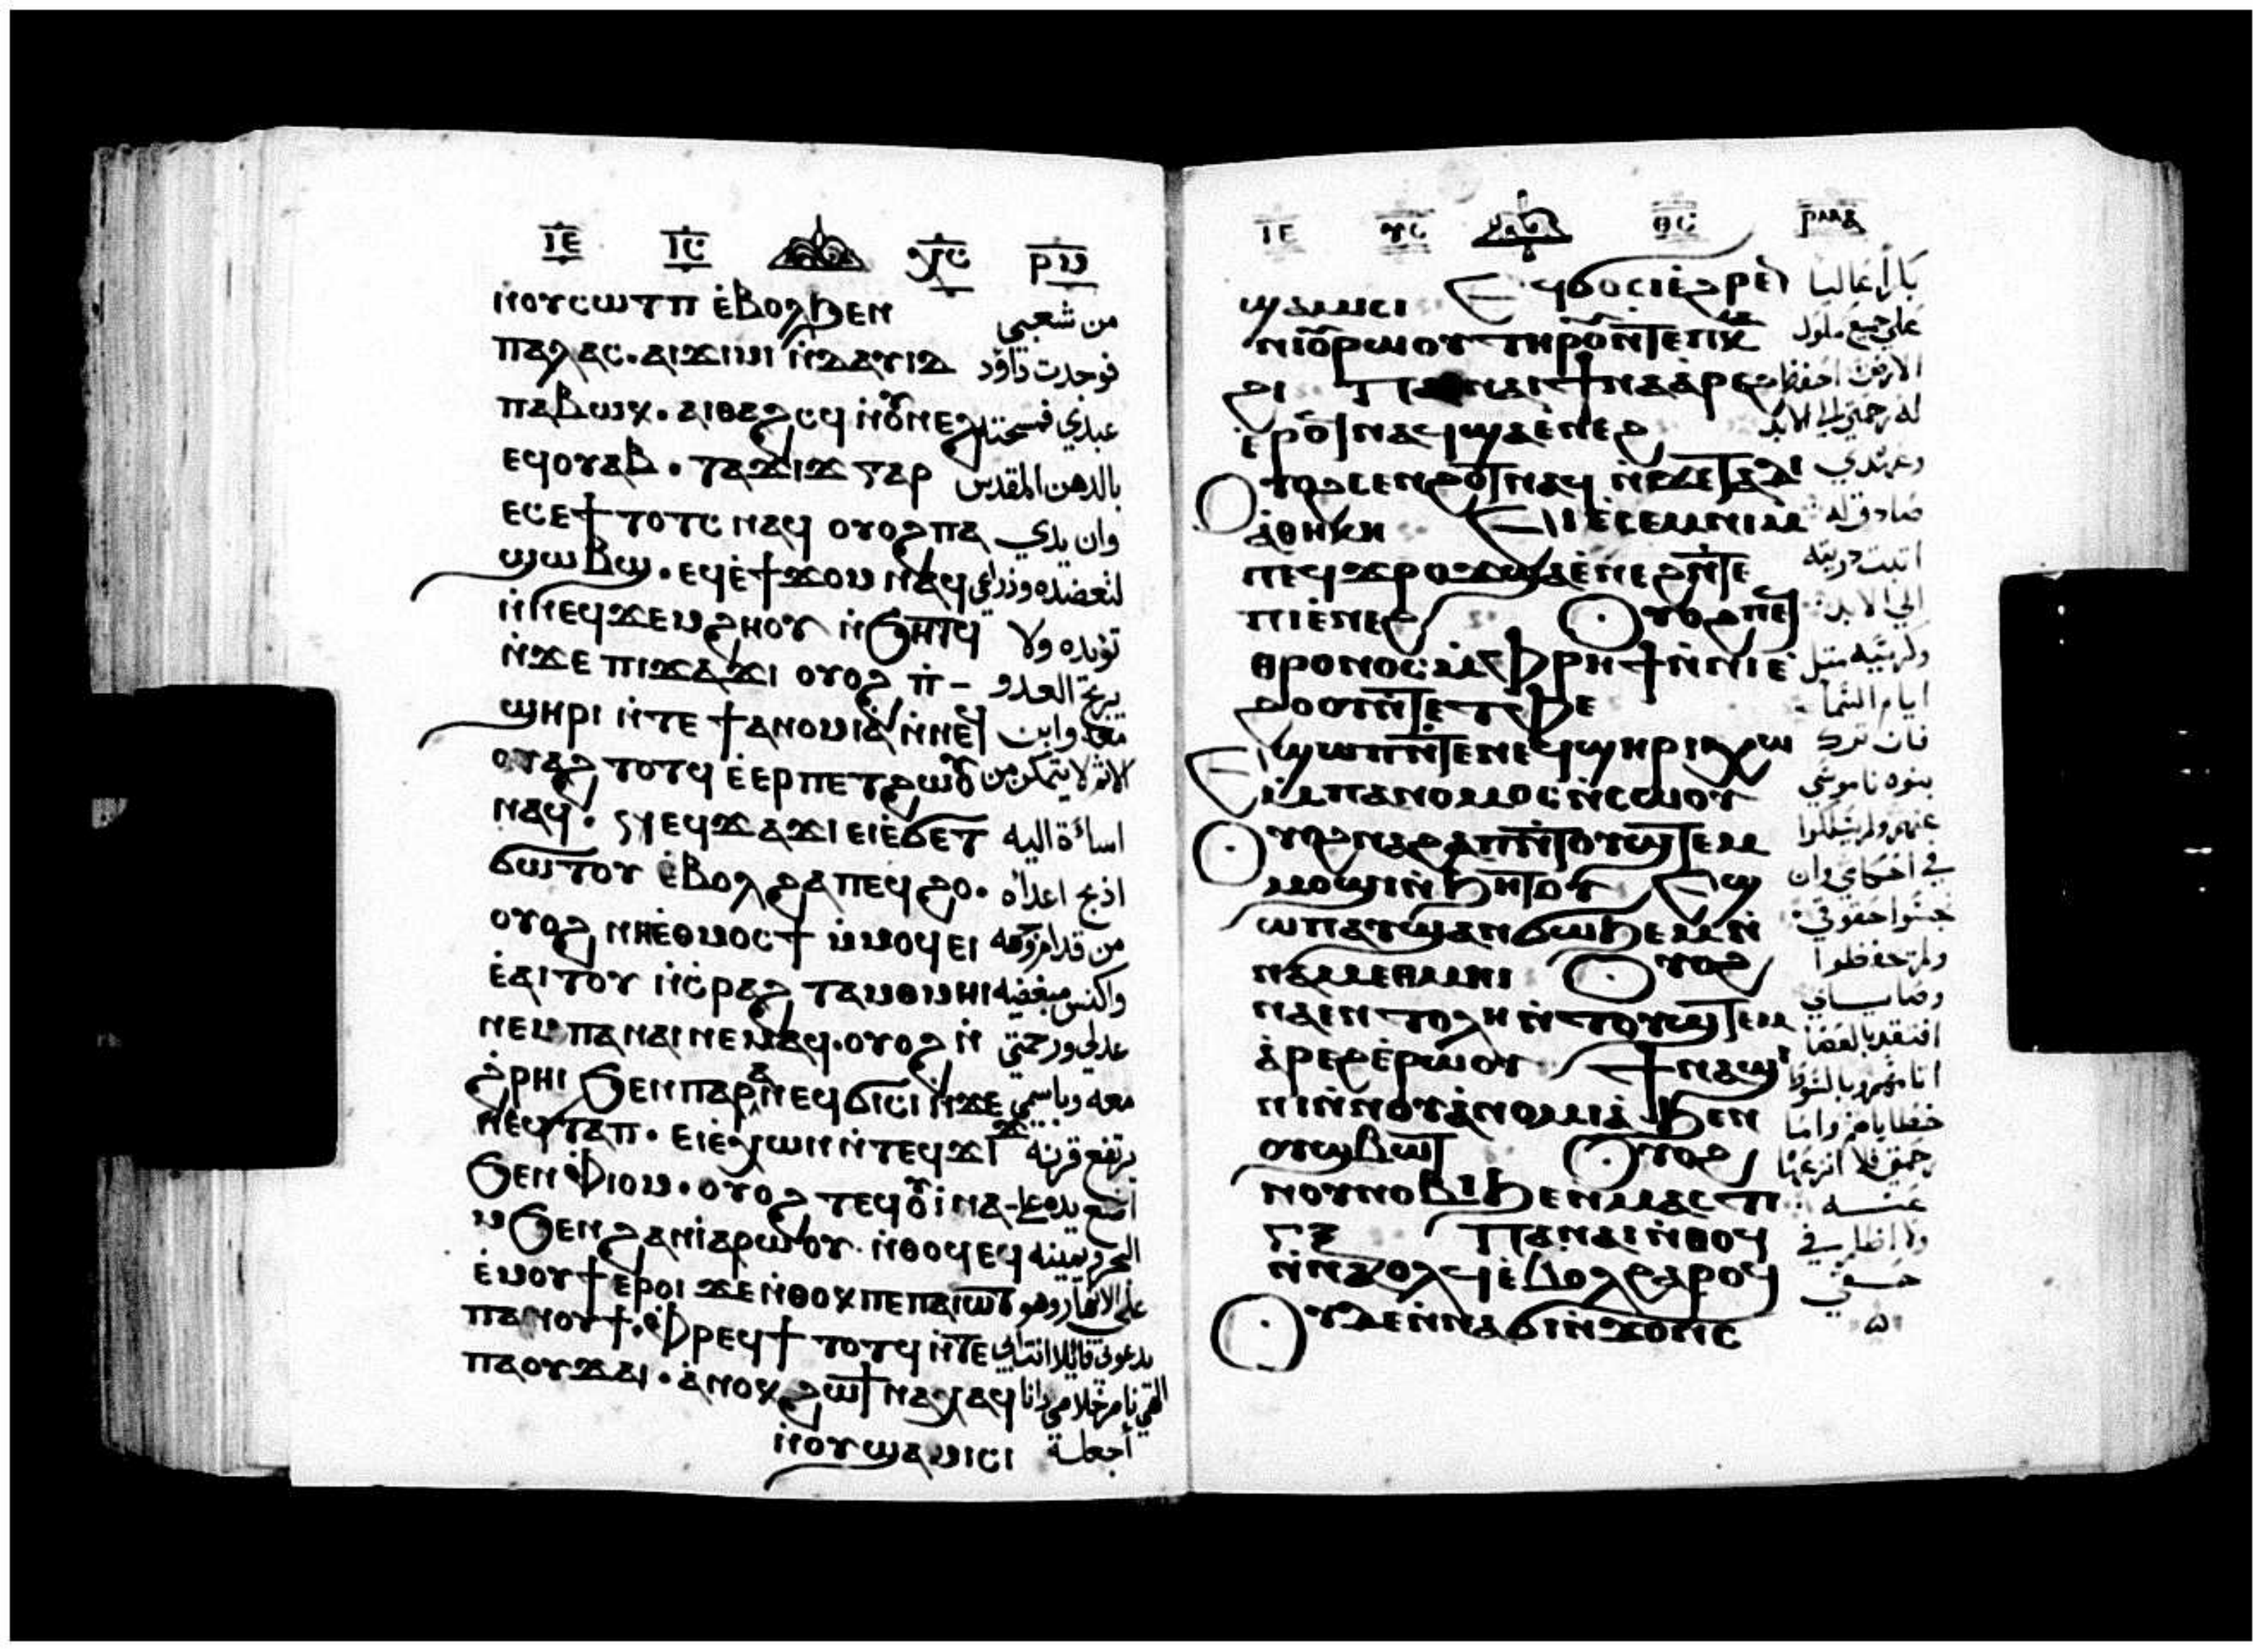 ⲒⲈ ⲒⲤ ⲬⲤ ⲢⲘ
ⲛ̀ⲟⲩⲥⲱⲧⲡ ⲉ̀ⲃⲟⲗϧⲉⲛ من شعبي
ⲡⲁⲗⲁⲟⲥ. ⲁⲓϫⲓⲙⲓ ⲛ̀ⲇⲁⲩⲓⲇ فوجدت داؤد
ⲡⲁⲃⲱⲕ. ⲁⲓⲑⲁϩⲥϥ ⲛ̀ⲟⲩⲛⲉϩ عبدي فمسحته
ⲉϥⲟⲩⲁⲃ. ⲧⲁϫⲓϫ ⲅⲁⲣ بالدهن المقدس
ⲉⲥⲉϯⲧⲟⲧⲥ ⲛⲁϥ ⲟⲩⲟϩ ⲡⲁ وان يدي
ϣⲱⲃϣ. ⲉϥⲉ̀ϯϫⲟⲙ ⲛⲁϥ لتعضده وذراعي
ⲛ̀ⲛⲉϥϫⲉⲙϩⲏⲟⲩ ⲛ̀ϧⲏⲧϥ تؤيده ولا
ⲛ̀ϫⲉ ⲡⲓϫⲁϫⲓ ⲟⲩⲟϩ ⲡ̀- يربح العدو
ϣⲏⲣⲓ ⲛ̀ⲧⲉ ϯⲁⲛⲟⲙⲓⲁ̀ ⲛ̀ⲛⲉϥ معه وابن
ⲟⲩⲁϩ ⲧⲟⲧϥ ⲉ̀ⲉⲣⲡⲉⲧϩⲱⲟⲩ الاثم لا يتمكن من
ⲛⲁϥ. ⲛⲉϥϫⲁϫⲓ ⲉⲓⲉ̀ϭⲉⲧ اساءة اليه
ϭⲱⲧⲟⲩ ⲉ̀ⲃⲟⲗ ϩⲁⲡⲉϥϩⲟ. اذبح اعداه
ⲟⲩⲟϩ ⲛⲏⲉ̀ⲑⲙⲟⲥϯ ⲙ̀ⲙⲟϥ ⲉⲓ من قدام وجهه
ⲉ̀ⲁⲓⲧⲟⲩ ⲛ̀ⲥ̀ⲣⲁϩ ⲧⲁⲙⲑⲙⲏⲓ واكسر مبغضيه
ⲛⲉⲙ ⲡⲁⲛⲁⲓ ⲛⲉⲙⲁϥ. ⲟⲩⲟϩ ⲛ̀ عدلي ورحمتي
ϩ̀ⲣⲏⲓ ϧⲉⲛⲡⲁⲣⲁⲛ ⲉϥϭⲓⲥⲓ ⲛ̀ϫⲉ معه وباسمي
ⲡⲉϥⲧⲁⲡ. ⲉⲓⲉ̀ⲭⲱ ⲛ̀ⲧⲉϥϫⲓϫ يرتفع قرنه
ϧⲉⲛ ⲫ̀ⲓⲟⲙ. ⲟⲩⲟϩ ⲧⲉϥⲟⲩⲓ̀ⲛⲁ- اضع يده على
ⲙ ϧⲉⲛ ϩⲁⲛⲓⲁⲣⲱⲟⲩ. ⲛ̀ⲑⲟϥ ⲉϥ البحر ويمينه
ⲉ̀ⲙⲟⲩϯ ⲉⲣⲟⲓ ϫⲉ ⲛ̀ⲑⲟⲕ ⲡⲉ ⲡⲁⲓⲱⲧ على الانهار وهو
ⲡⲁⲛⲟⲩϯ. ⲫ̀ⲣⲉϥϯ ⲧⲟⲧϥ ⲛ̀ⲧⲉ يدعوني قائلا انت ابي
ⲡⲁⲟⲩϫⲁⲓ. ⲁ̀ⲛⲟⲕ ϩⲱ ϯⲛⲁⲭⲁϥ الهي ناصر خلاصي وانا
ⲛ̀ⲟⲩϣⲁⲙⲓⲥⲓ أجعله
ⲒⲈ ⲨⲤ ⲐⲤ ⲢⲘⲀ
ϣⲁⲙⲓⲥⲓ ⲉϥϭⲟⲥⲓ ⲉ̀ϩⲣⲉ بكرا عاليا
ⲛⲓⲟⲩⲣⲱⲟⲩ ⲧⲏⲣⲟⲩ ⲛ̀ⲧⲉ ⲡⲕⲁ على جميع ملوك
ϩⲓ ⲡⲁⲛⲁⲓ ϯⲛⲁⲁ̀ⲣⲉϩ الارض احفظ
ⲉ̀ⲣⲟϥ ⲛⲁϥ ϣⲁⲉ̀ⲛⲉϩ له رحمتي الى الابد
ⲟⲩⲟϩ ⲥⲉⲛϩⲟⲧ ⲛⲁϥ ⲛ̀ϫⲉ ⲧⲁⲇⲓ وعهدي
ⲁ̀ⲑⲏⲕⲏ ⲉⲓⲉ̀ⲥⲉⲙⲛⲓ ⲙ̀ صادق له
ⲡⲉϥϫⲣⲟϫ ϣⲁⲉ̀ⲛⲉϩ ⲛ̀ⲧⲉ اثبت ذريته
ⲡⲓⲉ̀ⲛⲉϩ ⲟⲩⲟϩ ⲡⲉϥ الى الابد
ⲑⲣⲟⲛⲟⲥ ⲙ̀ⲫⲣⲏϯ ⲛ̀ⲛⲓⲉ̀ وكرسيه مثل
ϩⲟⲟⲩ ⲛ̀ⲧⲉ ⲧ̀ⲫⲉ ايام السما
ⲉϣⲱⲡ ⲛ̀ⲧⲉ ⲛⲉϥϣⲏⲣⲓ ⲭⲱ فان ترك
ⲙ̀ⲡⲁⲛⲟⲙⲟⲥ ⲛ̀ⲥⲱⲟⲩ بنوه ناموسي
ⲟⲩⲟϩ ⲛⲁϩⲁⲡ ⲛ̀ⲧⲟⲩϣⲧⲉⲙ عنهم ولم يسلكوا
ⲙⲟϣⲓ ⲛ̀ϧⲏⲧⲟⲩ ⲉϣ في احكامي وان
ⲱⲡ ⲁⲩϣⲁⲛϭⲱϧⲉⲙ ⲛ̀ نجسوا حقوقي
ⲛⲁⲙⲉⲑⲙⲏⲓ ⲟⲩⲟϩ ولم تحفظوا
ⲛⲁⲉⲛⲧⲟⲗⲏ ⲛ̀ⲧⲟⲩϣⲧⲉⲙ وصاياي
ⲁ̀ⲣⲉϩ ⲉ̀ⲣⲱⲟⲩ ϯⲛⲁϣⲓ افتقد بالعصا
ⲛⲓ ⲛ̀ⲛⲟⲩⲁ̀ⲛⲟⲙⲓⲁ̀ ϧⲉⲛ اثامهم وبالسوط
ⲟⲩϣⲃⲱⲧ ⲟⲩⲟϩ خطاياهم واما
ⲛⲟⲩⲛⲟⲃⲓ ϧⲉⲛ ⲙⲁⲥⲧⲓ رحمتي فلا انزعها
ⲅⲝ ⲡⲁⲛⲁⲓ ⲛ̀ⲑⲟϥ عنه
ⲛ̀ⲛⲁϥ ⲉ̀ⲃⲟⲗϩⲁⲣⲟϥ ولا اظلم في
ⲟⲩⲇⲉ ⲛ̀ⲛⲁϭⲓⲛ̀ϫⲟⲛⲥ حقي